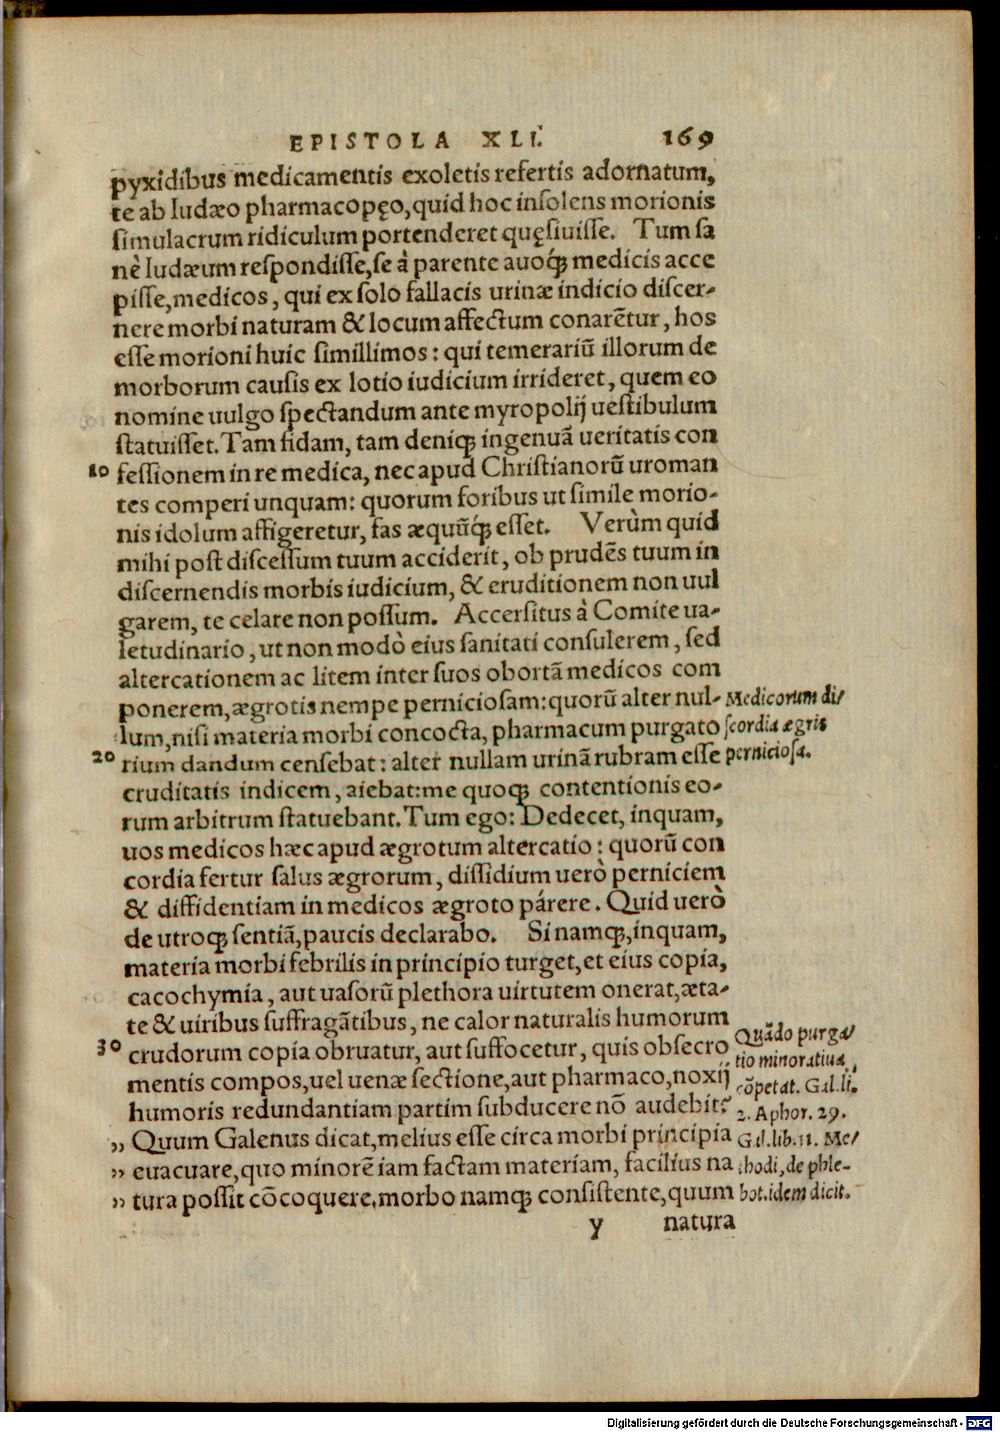 EPISTOLA XLI. 169
pyxidibus medicamentis exoletis refertis adornatum,
te ab Iudæo pharmacopęo, quid hoc insolens morionis
simulacrum ridiculum portenderet quęsiuisse. Tum sa
nè Iudæum respondisse, se à parente auoq́ꝫ medicis acce
pisse, medicos, qui ex solo fallacis urinæ indicio discer-
nere morbi naturam & locum affectum conarẽtur, hos
esse morioni huic simillimos: qui temerariũ illorum de
morborum causis ex lotio iudicium irrideret, quem eo
nomine uulgo spectandum ante myropolij uestibulum
statuisset. Tam fidam, tam deniqꝫ ingenuã ueritatis con
10 fessionem in re medica, nec apud Christianorũ uroman
tes comperi unquam: quorum foribus ut simile morio-
nis idolum affigeretur, fas æquũq́ꝫ esset. Verùm quid
mihi post discessum tuum acciderit, ob prudẽs tuum in
discernendis morbis iudicium, & eruditionem non uul
garem, te celare non possum. Accersitus à Comite ua-
letudinario, ut non modò eius sanitati consulerem, sed
altercationem ac litem inter suos obortã medicos com
ponerem, ægrotis nempe perniciosam: quorũ alter nul-
lum, nisi materia morbi concocta, pharmacum purgato
20 rium dandum censebat: alter nullam urinã rubram esse
cruditatis indicem, aiebat: me quoqꝫ contentionis eo-
rum arbitrum statuebant. Tum ego: Dedecet, inquam,
uos medicos hæc apud ægrotum altercatio: quorũ con
cordia fertur salus ægrorum, dissidium uerò perniciem
& diffidentiam in medicos ægroto párere. Quid uerò
de utroqꝫ sentiã, paucis declarabo. Si namqꝫ, inquam,
materia morbi febrilis in principio turget, et eius copia,
cacochymia, aut uasorũ plethora uirtutem onerat, æta-
te & uiribus suffragãtibus, ne calor naturalis humorum
30 crudorum copia obruatur, aut suffocetur, quis obsecro
mentis compos, uel uenæ sectione, aut pharmaco, noxij
humoris redundantiam partim subducere nõ audebit?
,, Quum Galenus dicat, melius esse circa morbi principia
,, euacuare, quo minorẽ iam factam materiam, facilius na
,, tura possit cõcoquere, morbo namqꝫ consistente, quum
y natura
Medicorum di/
scordia ægris
perniciosa.
Quãdo purga/
tio minoratiua
cõpetat. Gal. li.
2. Aphor. 29.
Gal. lib. 11. Me/
thodi, de phle-
bot. idem dicit.
Digitalisierung gefördert durch die Deutsche Forschungsgemeinschaft - DFG